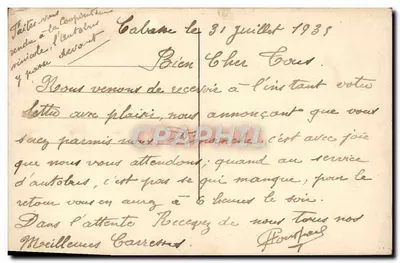 Faites-vous
rendre à la Coopérative
vinicole, l'autobus
y passe devant
Cabasse le 31 juillet 1935
Bien Cher Tous.
Nous venons de recevoir à l'instant votre
lettre avec plaisir, nous annonçant que vous
serez parmis nous Dimanche, c'est avec joie
que nous vous attendons; quand au service
d'autobus, c'est pas se qui manque, pour le
retour vous en aurez à 6 heures le soir.
Dans l'attente Recevez de nous tous nos
Meilleures Carresses.
CPARAMA